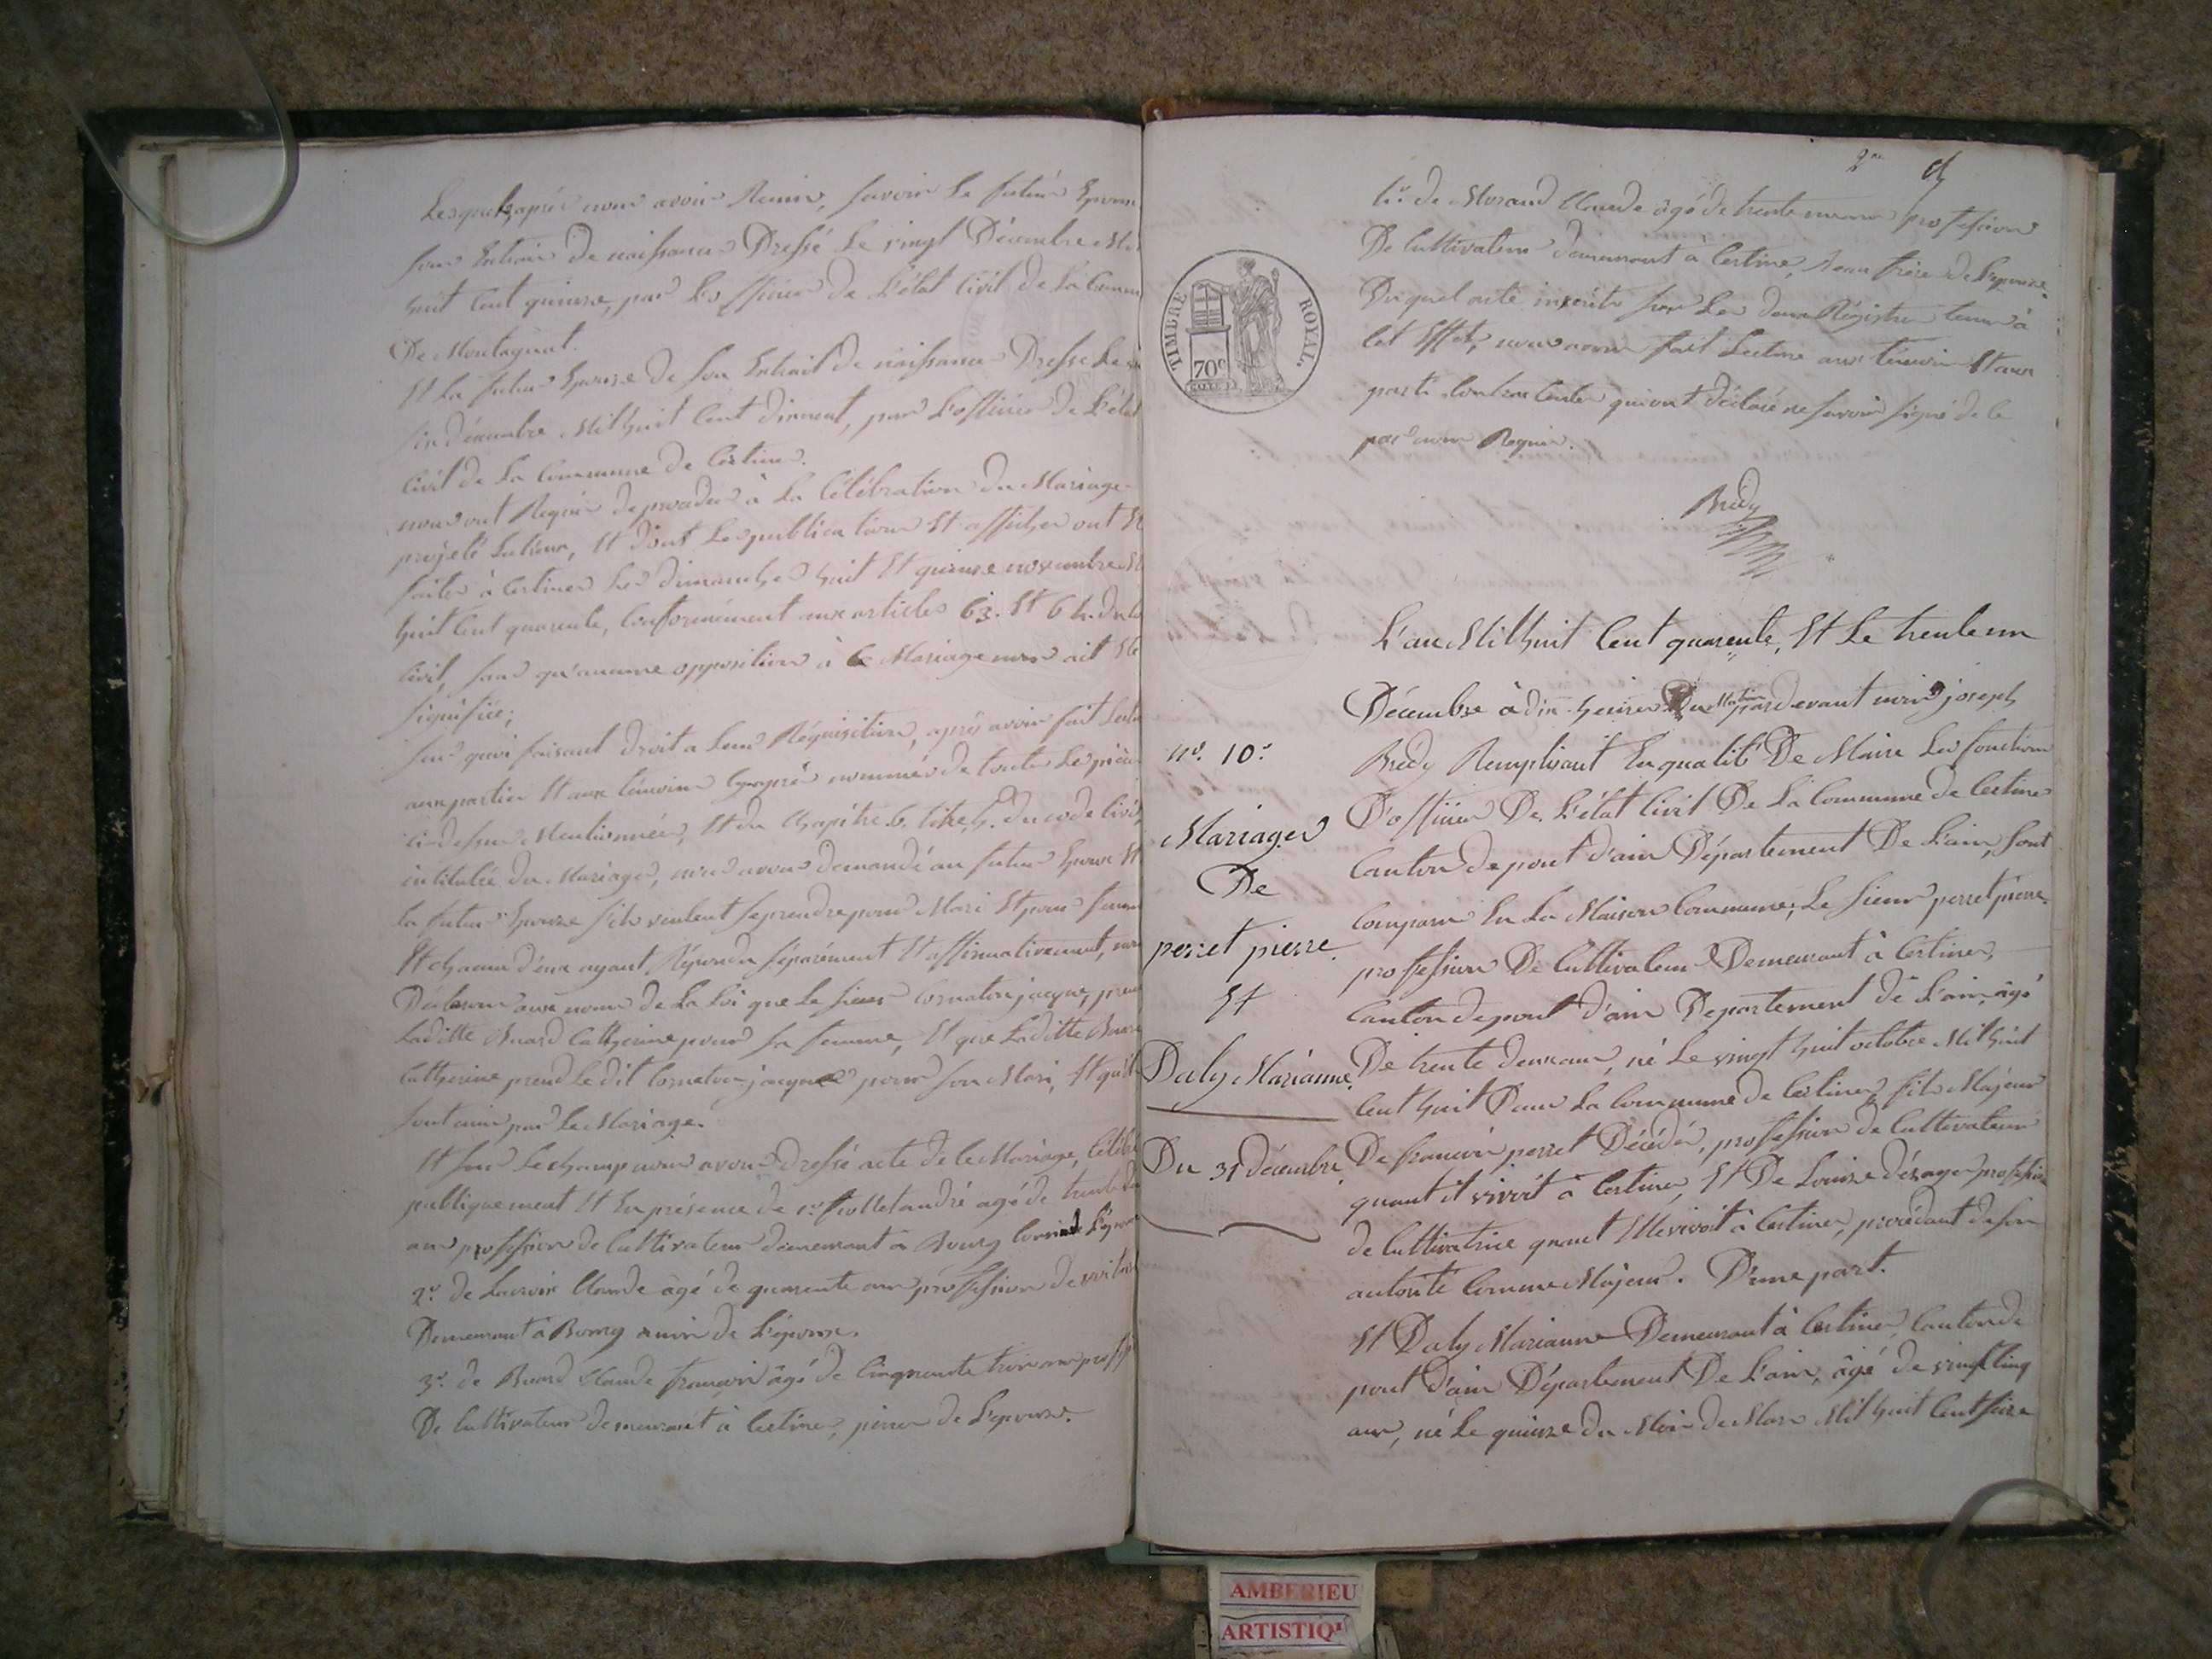 Lesquels après nous avoir Remis, savoir Le futur Epoux
son Extrait De naissance Dressé Le vingt Décembre Mil
huit Cent quinze, par L'officier de L'état Civil de La Commu
De Montagnat.
Et La future Epouse de son Extrait de naissance Dressé Le
six décembre Mil huit Cent dixneuf, par L'officier de L'état
Civil de La Commune de Certines.
nous ont Requis de procéder à La Célébration du Mariage
projeté Entreux, Et dont Les publications Et affiches ont Et
faites à Certines Les dimanches huit Et quinze novembre Mil
huit Cent quarente, Conformement aux articles 63. Et 64. du Co
Civil, sans qu'aucune opposition à Ce Mariage nous ait Eté
signifiée;
sur quoi faisant droit a Leur Réquisition, après avoir fait Lectu
aux parties Et aux témoins Cy après nommés de toutes Les pièces
Ci-dessus Mentionnées, Et du Chapitre 6. titre 5. du code Civil,
intitulé du Mariage, nous avons demandé au futur Epoux Et
la future Epouse s'ils veulent se prendre pour Mari Et pour femme
Et chacun d'eux ayant Répondu séparément Et affirmativement, nous
Déclarons aux nom de La Loi que Le sieur Cornaton jacque, prend
Laditte Buard Catherine pour sa femme, Et que Laditte Buard
Catherine prend Le dit Cornaton jacque pour son Mari, Et qu'ils
sont unis par Le Mariage.
Et sur Le champ nous avons dressé acte de Ce Mariage, Célébré
publiquement Et En présence de 1.º andré agé de trente
ans profession de Cultivateur demeurant à Bourg
2.º de Claude âgé de quarente ans profession de
Demeurant à Bourg de L'épouse.
3.º de Buard Claude françois âgé de Cinquante trois ans profession
De Cultivateur demeurant à Certines, de L'epouse.
2.me
4.º de Morand Claude âgé de trente ans profession
De Cultivateur demeurant à Certines, Beau frère de L'epouse.
Duquel acte inscrits sur Les deux Régistres tenus à
Cet Effet, nous avons fait Lecture aux temoins Et aux
partis Contractantes qui ont déclaré ne savoir signé de Ce
par nous Requis.
Brédy
TIMBRE ROYAL.
70c
L'an Mil huit Cent quarente, Et Le trente un
Décembre à dix heures Du Matin pardevant nous joseph
Brédy Remplisant En qualité De Maire Les fonctions
D'officier De L'état Civil De La Commune de Certines
Canton de pont d'ain Département De L'ain, sont
Comparu En La Maison Commune, Le sieur perret pierre
profession De Cultivateur Demeurant à Certines,
Canton de pont d'ain Departement de L'ain, âgé
De trente deux ans, né Le vingt huit octobre Mil huit
Cent huit Dans La Commune de Certines, fils Majeur
De françois perret Décédé, profession de Cultivateur
quant il vivoit à Certines, Et De Louise profession
de Cultivatrice quant Elle vivoit à Certines, procédant de son
autorité Comme Majeur. D'une part.
Et Daly Marianne Demeurant à Certines, Canton de
pont d'ain Département De L'ain, âgé de vingt Cinq
ans, né Le quinze du Mois de Mars Mil huit Cent seize
n.º 10.º
Mariages
De
perret pierre.
Et
Daly Marianne.
Du 31 décembre.
AMBERIEU
ARTISTIQ